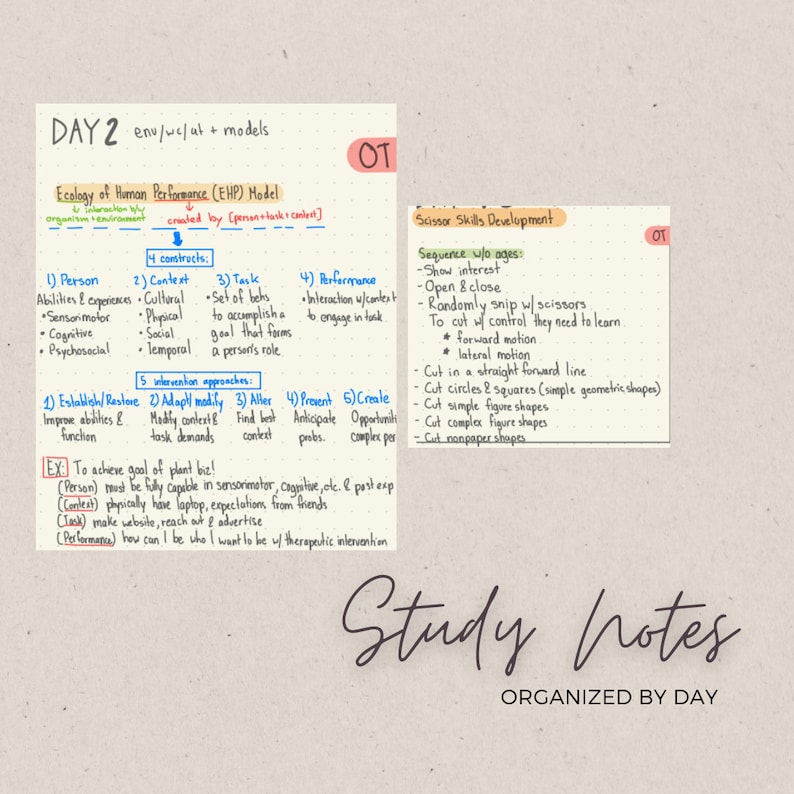 DAY 2 env/wc/at + models
OT
Ecology of Human Performance (EHP) Model
↳ interaction b/w
organism + environment
created by [person + task + context]
4 constructs:
1) Person
Abilities & experiences
• Sensorimotor
• Cognitive
• Psychosocial
2) Context
• Cultural
• Physical
• Social
• Temporal
3) Task
• Set of behs
to accomplish a
goal that forms
a person's role.
4) Performance
• Interaction w/context
to engage in task
5 intervention approaches:
1) Establish/Restore
Improve abilities &
function
2) Adapt/modify
Modify context &
task demands
3) Alter
Find best
context
4) Prevent
Anticipate
probs.
5) Create
Opportuniti
complex per
EX: To achieve goal of plant biz!
(Person) must be fully capable in sensorimotor, cognitive, etc. & past exp
(Context) physically have laptop, expectations from friends
(Task) make website, reach out & advertise
(Performance) how can I be who I want to be w/ therapeutic intervention
Scissor Skills Development
OT
Sequence w/o ages:
- Show interest
- Open & close
- Randomly snip w/ scissors
To cut w/ control they need to learn
* forward motion
* lateral motion
- Cut in a straight forward line
- Cut circles & squares (simple geometric shapes)
- Cut simple figure shapes
- Cut complex figure shapes
- Cut nonpaper shapes
Study Notes
ORGANIZED BY DAY